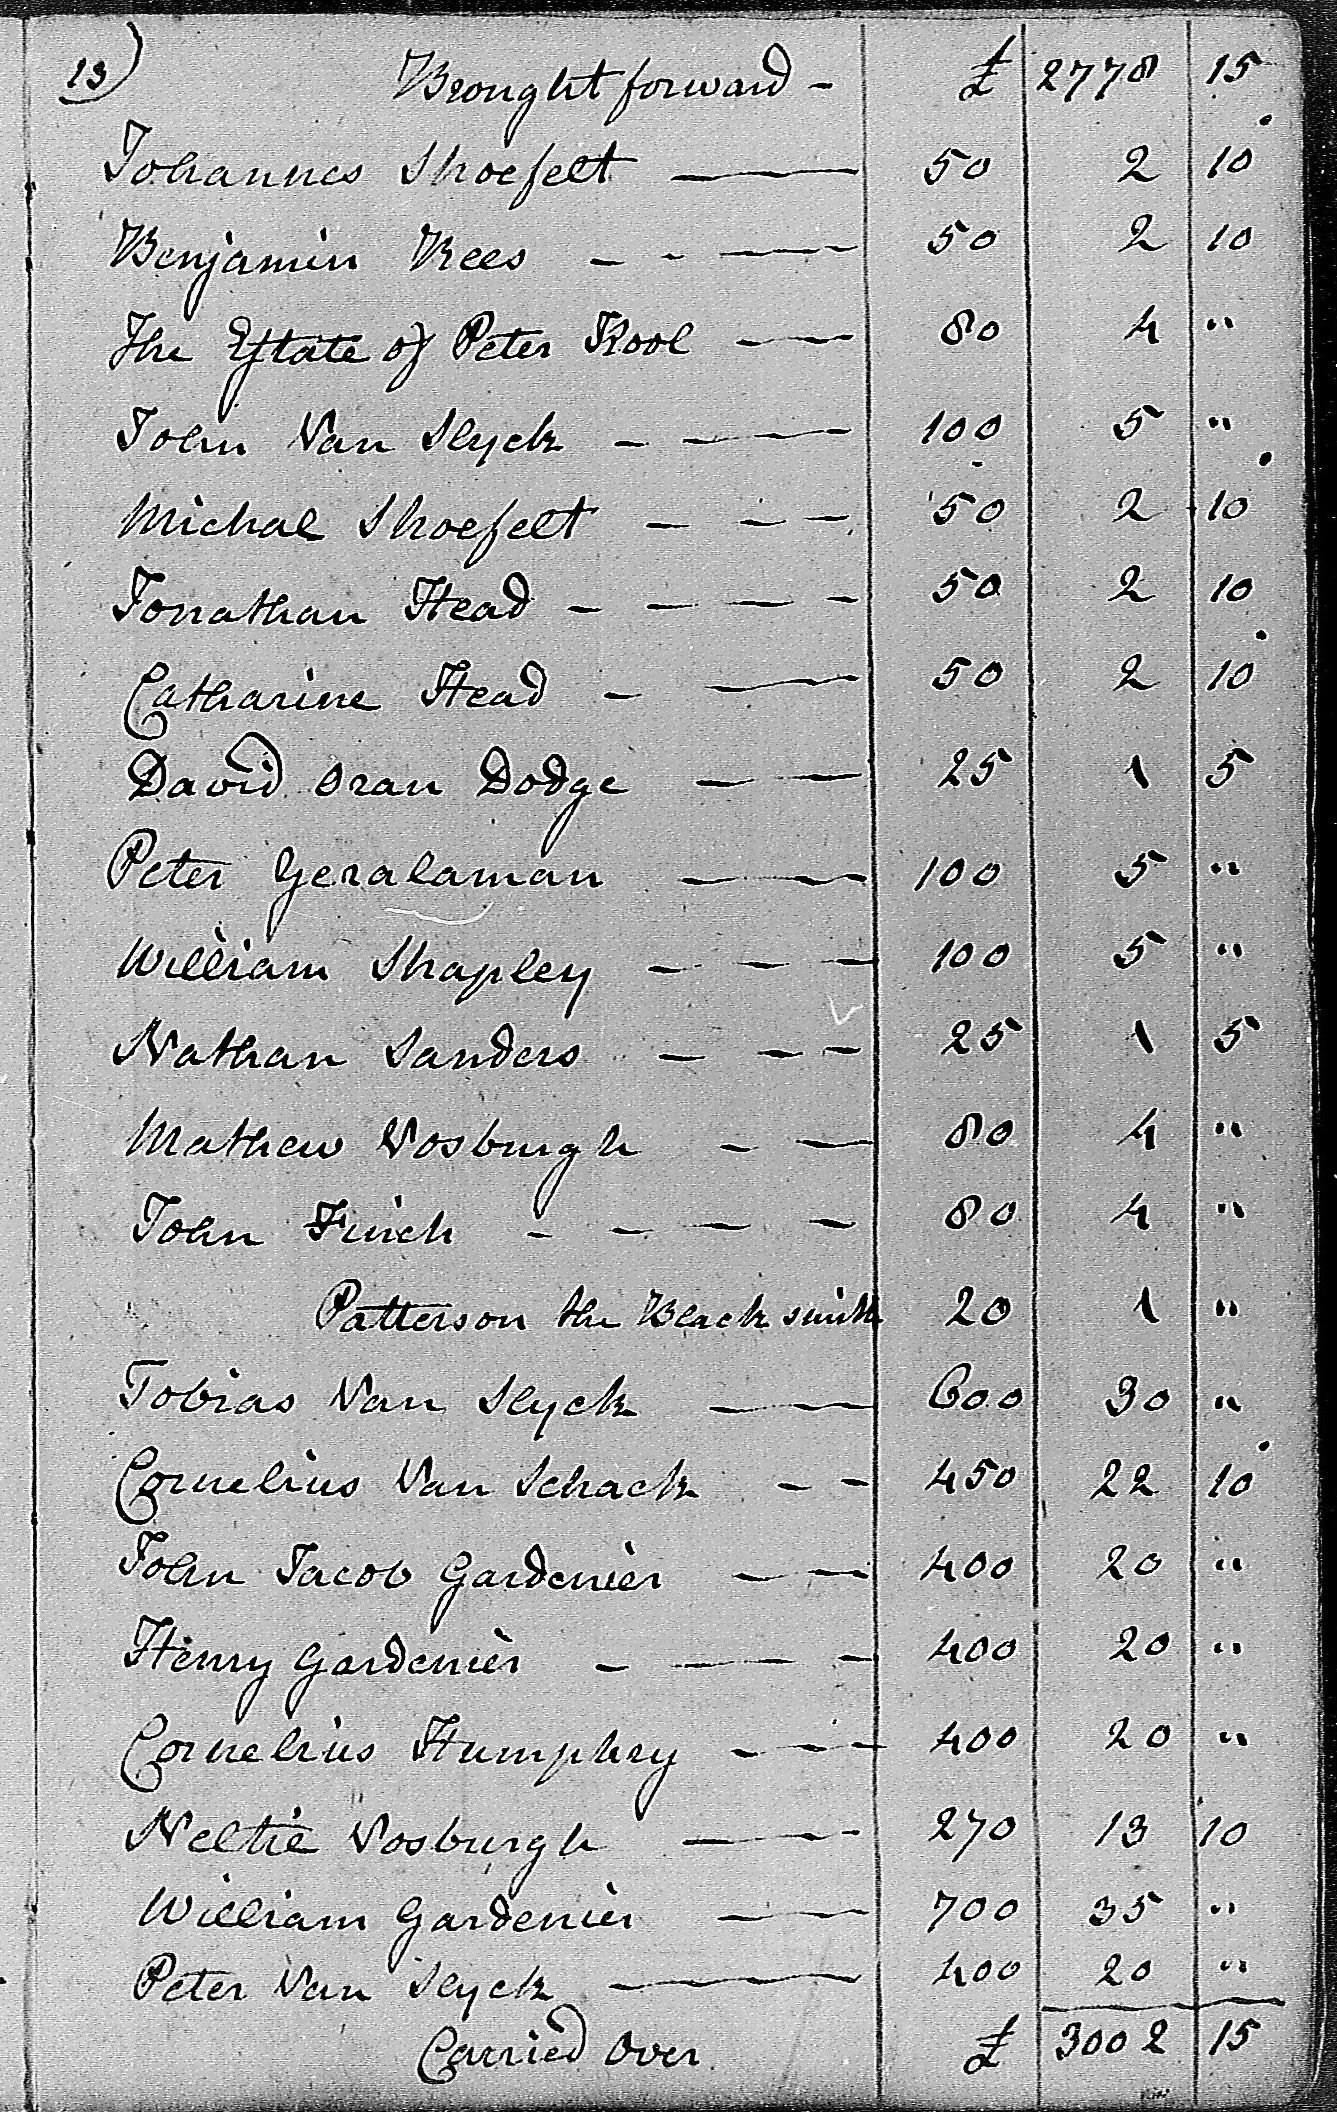 13)
Brought forward - £ 2778 15
Johannes Shoefelt — 50 2 10
Benjamin Rees - - — 50 2 10
The Estate of Peter Kool — 80 4 "
John Van Slyck - — 100 5 "
Michal Shoefelt - - - 50 2 10
Jonathan Head - - - - 50 2 10
Catharine Head - — 50 2 10
David Oran Dodge - — 25 1 5
Peter Geralaman — 100 5 "
William Shapley - - - 100 5 "
Nathan Sanders - - - 25 1 5
Mathew Vosburgh - — 80 4 "
John Finch - - - - 80 4 "
Patterson the Black smith 20 1 "
Tobias Van Slyck — 600 30 "
Cornelius Van Schack - - 450 22 10
John Jacob Gardenier - — 400 20 "
Henry Gardenier - — - - 400 20 "
Cornelius Humphry - - - 400 20 "
Neltie Vosburgh — 270 13 10
William Gardenier — 700 35 "
Peter Van Slyck — 400 20 "
Carried Over £ 3002 15